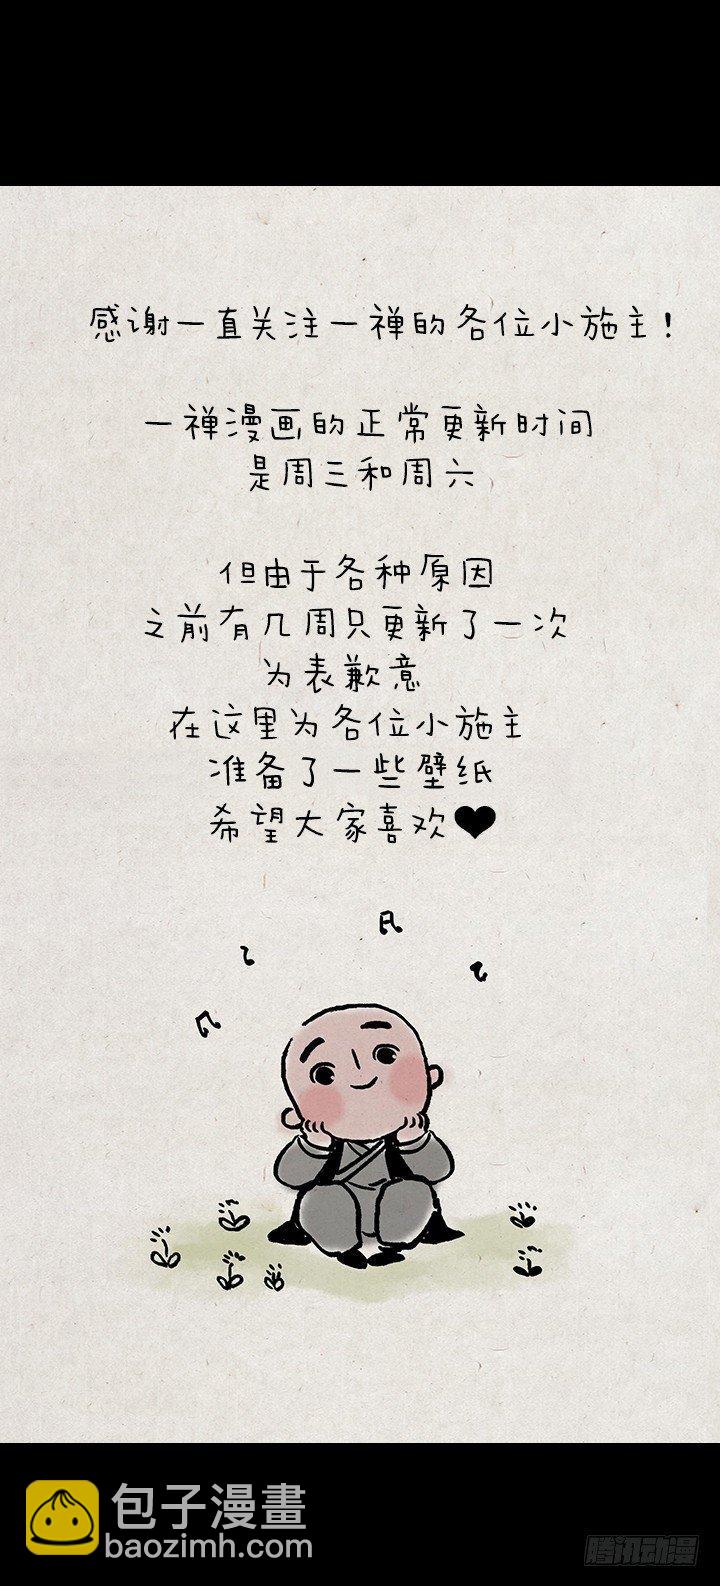 感谢一直关注一禅的各位小施主!
一禅漫画的正常更新时间
是周三和周六
但由于各种原因
之前有几周只更新了一次
为表歉意
在这里为各位小施主
准备了一些壁纸
希望大家喜欢♥
包子漫畫
baozimh.com
腾讯动漫